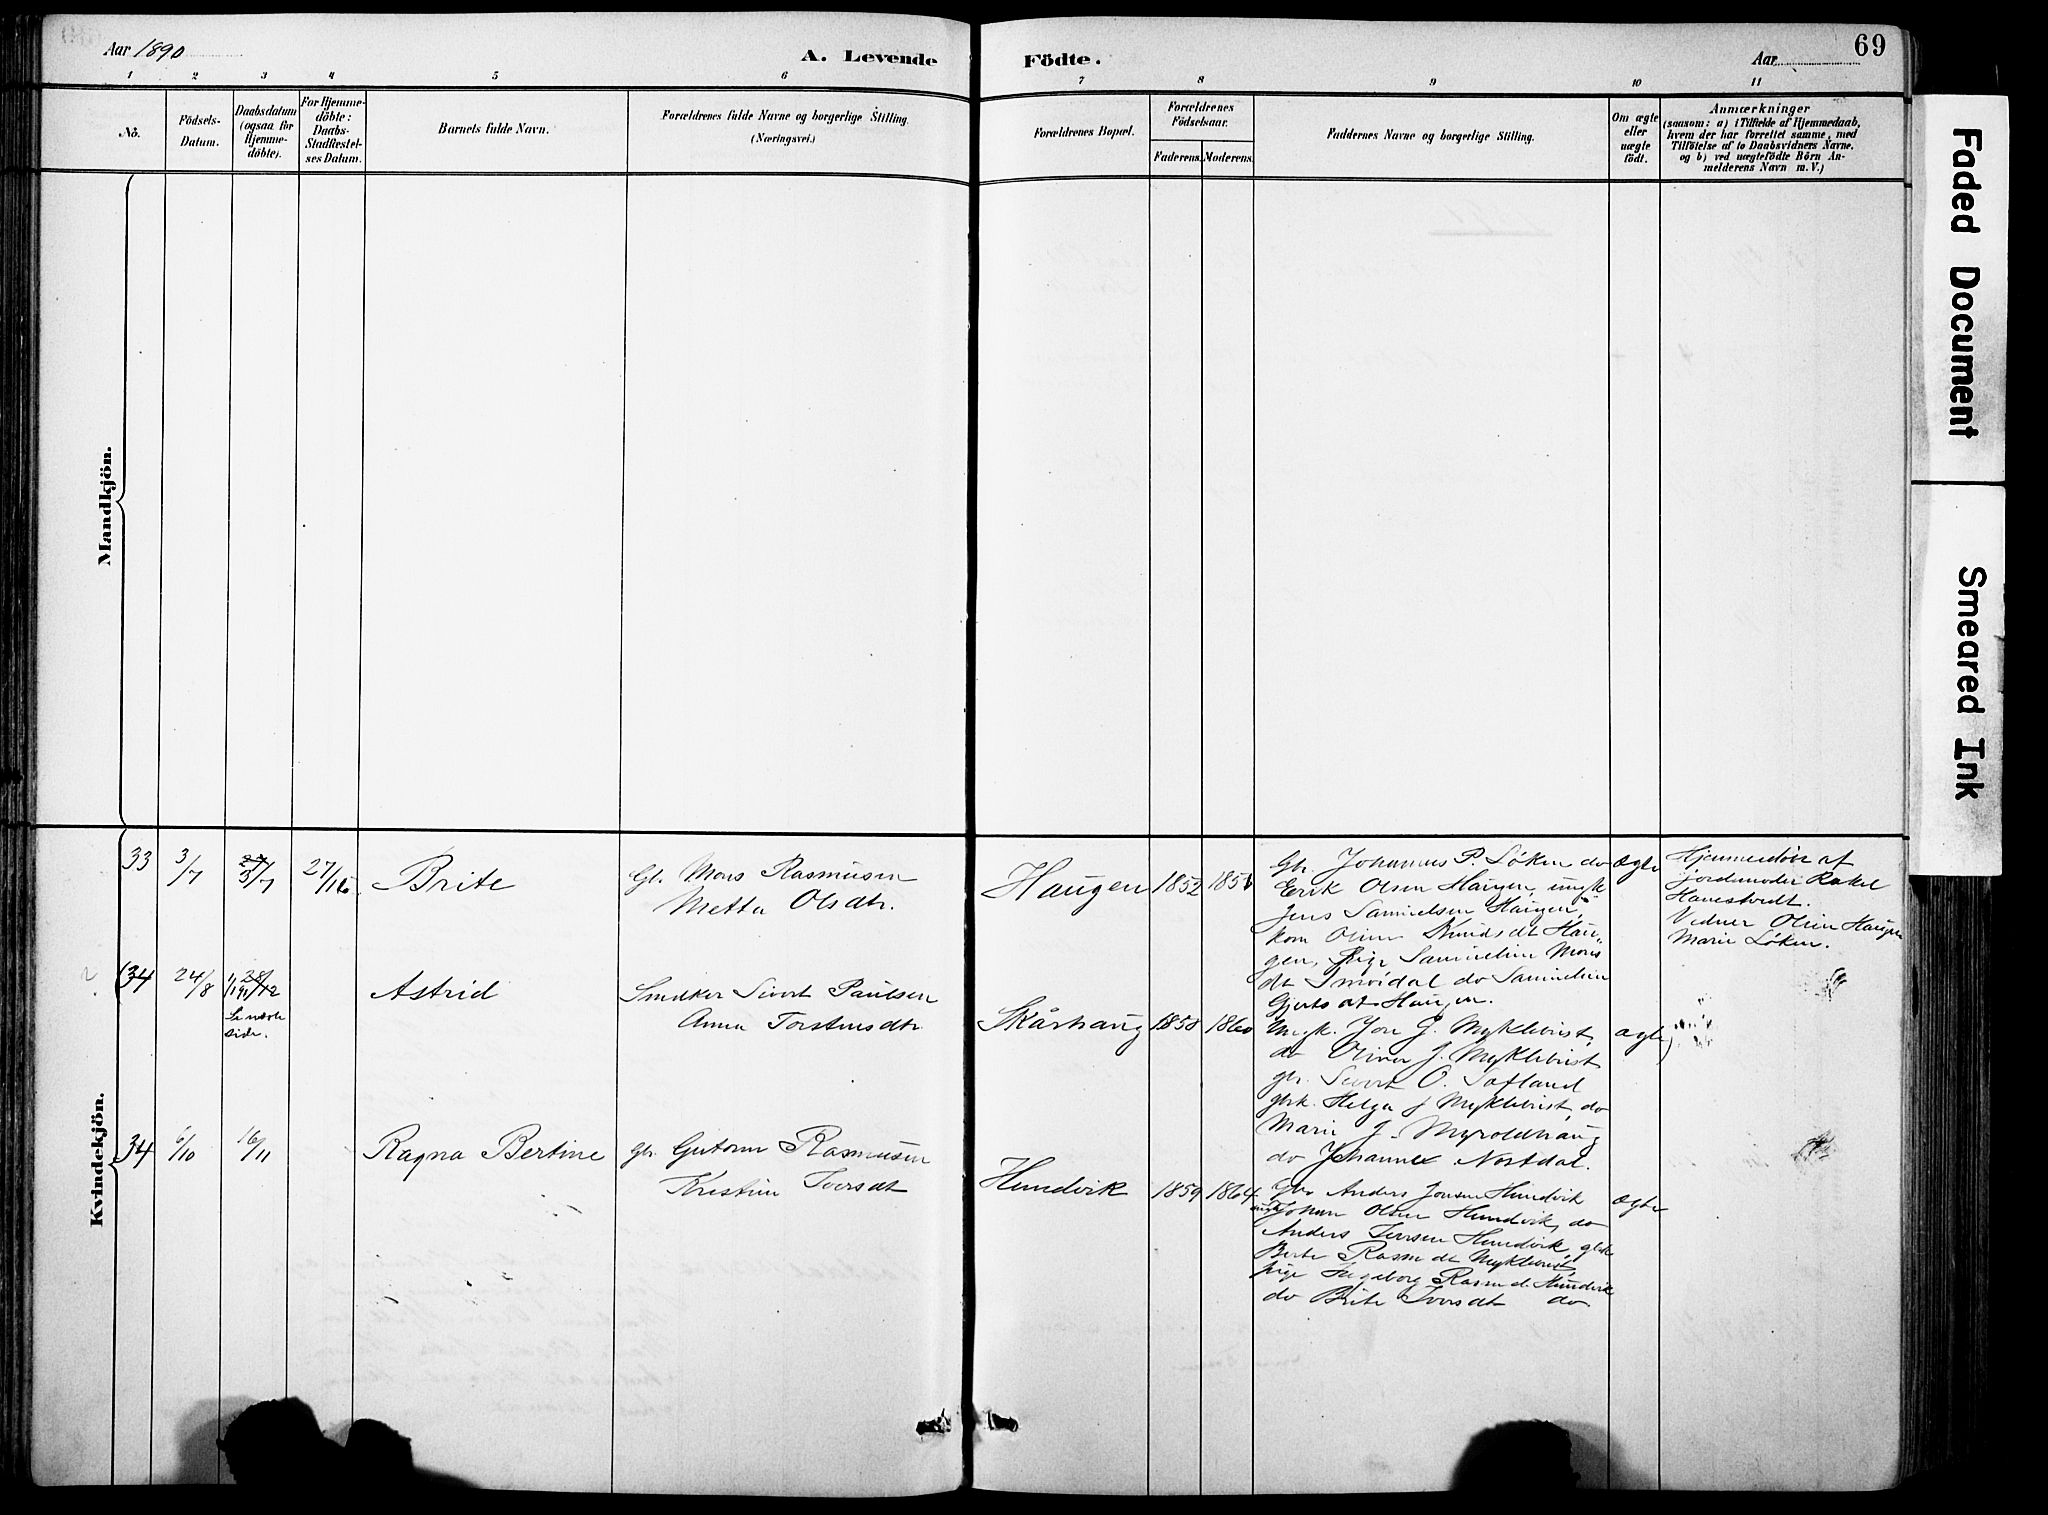 Aar 1890
A. Levende
Födte.
Aar
69
1 2 3 4 5 6 7 8 9 10 11
No.
Födsels-
Datum.
Daabsdatum
(ogsaa for
Hjemme-
döbte).
For Hjemme-
döbte:
Daabs-
Stadfæstel-
ses Datum.
Barnets fulde Navn.
Forældrenes fulde Navne og borgerlige Stilling.
(Næringsvei.)
Forældrenes Bopæl.
Forældrenes
Födselsaar.
Faderens.
Moderens.
Faddernes Navne og borgerlige Stilling.
Om ægte
eller
uægte
født.
Anmærkninger
(saasom: a) i Tilfælde af Hjemmedaab,
hvem der har forrettet samme, med
Tilføielse af to Daabsvidners Navne,
og b) ved uægtefödte Börn An-
melderens Navn m. V.)
Mandkjön.
Kvindekjön.
33
3/7
3/7
27/
Brite
Gb. Mons Rasmusen
Metta Olsdtr.
Haugen
1852
Gb. Johannes P. Løken do
Erik Olsen Haugen, ungk
Jens Samuelsen Haugen,
kone Oline Knudsdt Hau-
gen, Pige Samueline Mons
dt Smørdal do Samueline
Gjertsdt Haugen.
ægte
Hjemmedøbt af
jordemoder Rakel
Vidner Oline Haugen
Marie Løken.
(34
24/8
Se næste
side.
Astrid
Smulkar Sivert Paulsen
Anna Torstensdtr.
Skårhaug
1858
1860
Ungk. Jon J. Myklebust,
do Oliver J. Myklebust
gb. Sivert O. Sætland
gbk. Helga J Myklebust, do
Marie J. Myroldhaug
do Johanne Nostdal.
ægte)
34
6/10
16/11
Ragna Bertine
gb. Gutorm Rasmusen
Kristine Iversdt
Hundvik
1859
1864
Gb. Anders Jonsen Hundvik
ungk Johan Olsen Hundvik, do
Anders Jensen Hundvik, gbk
Berte Rasm dt Myklebust,
pige Ingeborg Rasm d. Hundvik
do Brite Iversdt do
ægte
Faded Document
Smeared Ink